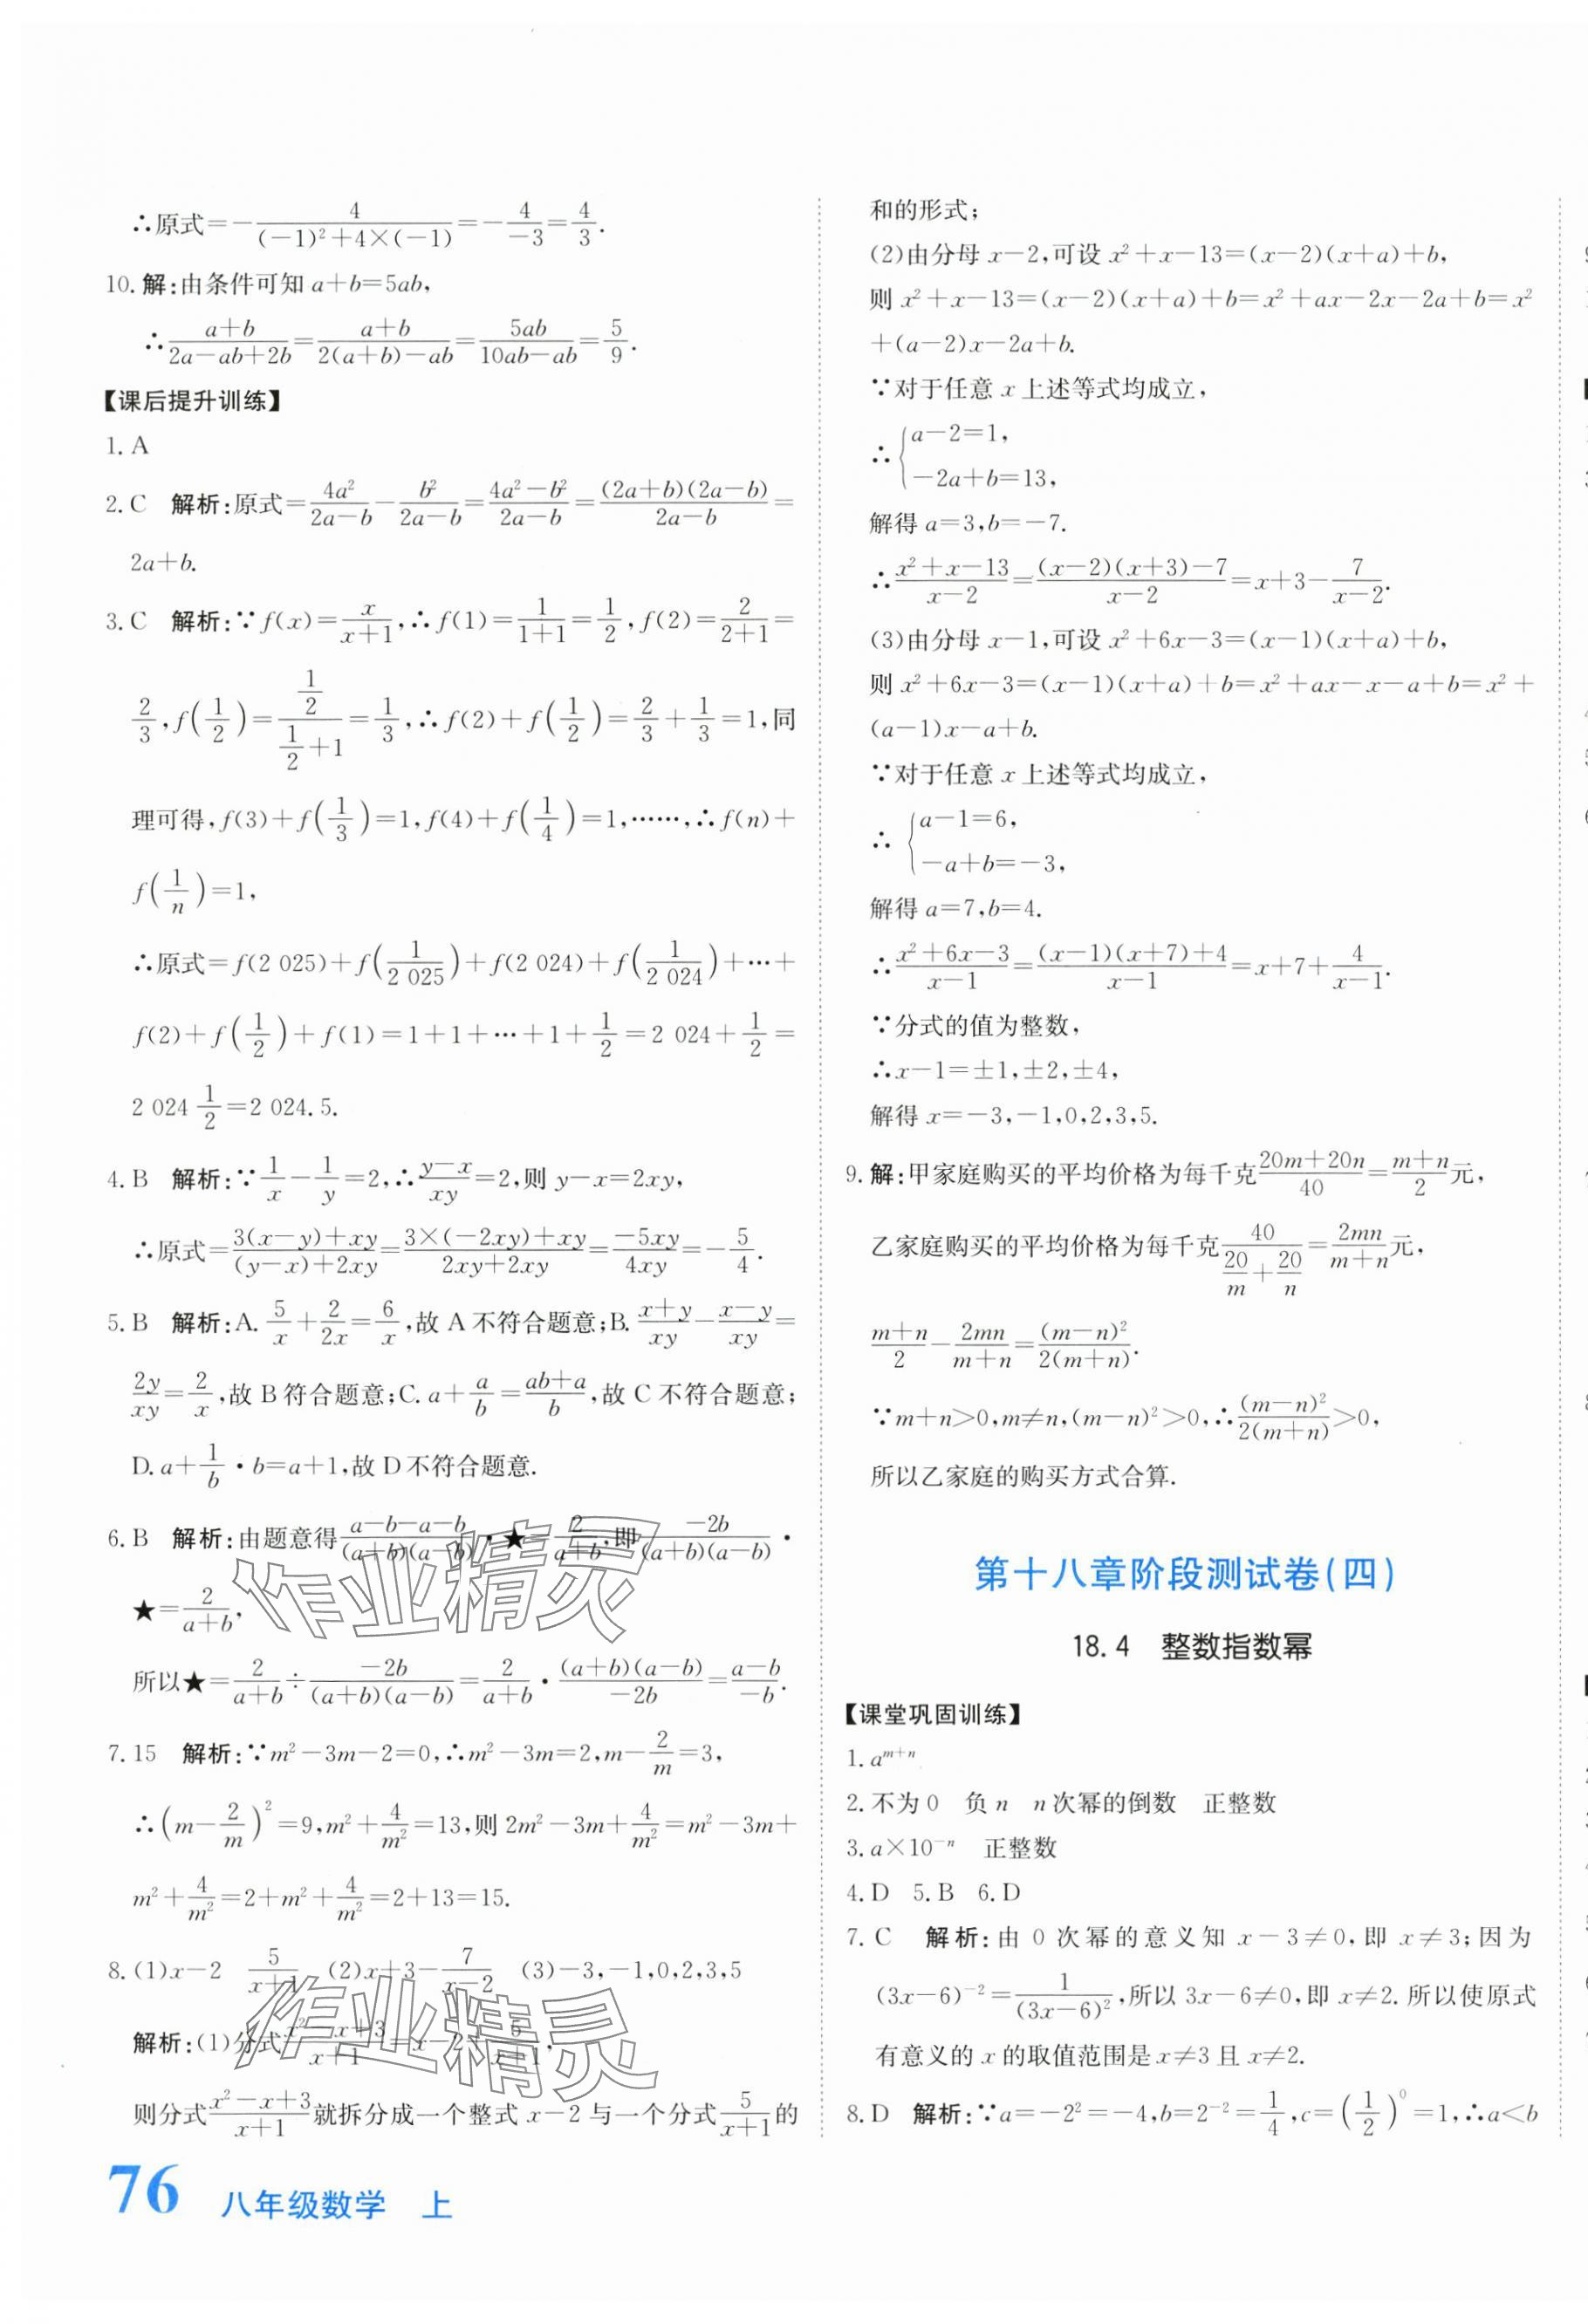 ∴原式=-\frac{4}{(-1)²+4×(-1)}=-\frac{4}{-3}=\frac{4}{3}.
10. 解:由条件可知 a+b=5ab,
∴\frac{a+b}{2a-ab+2b}=\frac{a+b}{2(a+b)-ab}=\frac{5ab}{10ab-ab}=\frac{5}{9}.
【课后提升训练】
1. A
2. C 解析:原式=\frac{4a²}{2a-b}-\frac{b²}{2a-b}=\frac{4a²-b²}{2a-b}=\frac{(2a+b)(2a-b)}{2a-b}=
2a+b.
3. C 解析:∵f(x)=\frac{x}{x+1},∴f(1)=\frac{1}{1+1}=\frac{1}{2},f(2)=\frac{2}{2+1}=
\frac{2}{3},f(\frac{1}{2})=\frac{\frac{1}{2}}{\frac{1}{2}+1}=\frac{1}{3},∴f(2)+f(\frac{1}{2})=\frac{2}{3}+\frac{1}{3}=1,同
理可得,f(3)+f(\frac{1}{3})=1,f(4)+f(\frac{1}{4})=1,……,∴f(n)+
f(\frac{1}{n})=1,
∴原式=f(2 025)+f(\frac{1}{2 025})+f(2 024)+f(\frac{1}{2 024})+…+
f(2)+f(\frac{1}{2})+f(1)=1+1+…+1+\frac{1}{2}=2 024+\frac{1}{2}=
2 024\frac{1}{2}=2 024.5.
4. B 解析:∵\frac{1}{x}-\frac{1}{y}=2,∴\frac{y-x}{xy}=2,则 y-x=2xy,
∴原式=\frac{3(x-y)+xy}{(y-x)+2xy}=\frac{3×(-2xy)+xy}{2xy+2xy}=\frac{-5xy}{4xy}=-\frac{5}{4}.
5. B 解析:A. \frac{5}{x}+\frac{2}{2x}=\frac{6}{x},故 A 不符合题意;B. \frac{x+y}{xy}-\frac{x-y}{xy}=
\frac{2y}{xy}=\frac{2}{x},故 B 符合题意;C. a+\frac{a}{b}=\frac{ab+a}{b},故 C 不符合题意;
D. a+\frac{1}{b}·b=a+1,故 D 不符合题意.
6. B 解析:由题意得\frac{a-b-a-b}{(a+b)(a-b)}·★=\frac{2}{a+b},即\frac{-2b}{(a+b)(a-b)}·
★=\frac{2}{a+b},
所以★=\frac{2}{a+b}÷\frac{-2b}{(a+b)(a-b)}=\frac{2}{a+b}·\frac{(a+b)(a-b)}{-2b}=\frac{a-b}{-b}.
7. 15 解析:∵m²-3m-2=0,∴m²-3m=2,m-\frac{2}{m}=3,
∴(m-\frac{2}{m})²=9,m²+\frac{4}{m²}=13,则 2m²-3m+\frac{4}{m²}=m²-3m+
m²+\frac{4}{m²}=2+m²+\frac{4}{m²}=2+13=15.
8. (1)x-2 \frac{5}{x+1} (2)x+3-\frac{7}{x-2} (3)-3,-1,0,2,3,5
解析:(1)分式\frac{x²-x+3}{x+1}=x-2+\frac{5}{x+1},
则分式\frac{x²-x+3}{x+1}就拆分成一个整式 x-2 与一个分式\frac{5}{x+1}的
76 八年级数学 上
和的形式;
(2)由分母 x-2,可设 x²+x-13=(x-2)(x+a)+b,
则 x²+x-13=(x-2)(x+a)+b=x²+ax-2x-2a+b=x²
+(a-2)x-2a+b.
∵对于任意 x 上述等式均成立,
∴{a-2=1,
-2a+b=13,
解得 a=3,b=-7.
∴\frac{x²+x-13}{x-2}=\frac{(x-2)(x+3)-7}{x-2}=x+3-\frac{7}{x-2}.
(3)由分母 x-1,可设 x²+6x-3=(x-1)(x+a)+b,
则 x²+6x-3=(x-1)(x+a)+b=x²+ax-x-a+b=x²+
(a-1)x-a+b.
∵对于任意 x 上述等式均成立,
∴{a-1=6,
-a+b=-3,
解得 a=7,b=4.
∴\frac{x²+6x-3}{x-1}=\frac{(x-1)(x+7)+4}{x-1}=x+7+\frac{4}{x-1}.
∵分式的值为整数,
∴x-1=±1,±2,±4,
解得 x=-3,-1,0,2,3,5.
9. 解:甲家庭购买的平均价格为每千克\frac{20m+20n}{40}=\frac{m+n}{2}元,
乙家庭购买的平均价格为每千克\frac{40}{\frac{20}{m}+\frac{20}{n}}=\frac{2mn}{m+n}元,
\frac{m+n}{2}-\frac{2mn}{m+n}=\frac{(m-n)²}{2(m+n)}.
∵m+n>0,m≠n,(m-n)²>0,∴\frac{(m-n)²}{2(m+n)}>0,
所以乙家庭的购买方式合算.
第十八章阶段测试卷(四)
18.4 整数指数幂
【课堂巩固训练】
1. a^{m+n}
2. 不为 0 负 n n 次幂的倒数 正整数
3. a×10^{-n} 正整数
4. D 5. B 6. D
7. C 解析:由 0 次幂的意义知 x-3≠0,即 x≠3;因为
(3x-6)^{-2}=\frac{1}{(3x-6)²},所以 3x-6≠0,即 x≠2. 所以使原式
有意义的 x 的取值范围是 x≠3 且 x≠2.
8. D 解析:∵a=-2²=-4,b=2^{-2}=\frac{1}{4},c=(\frac{1}{2})^{0}=1,∴a<b
作业精灵
作业精灵